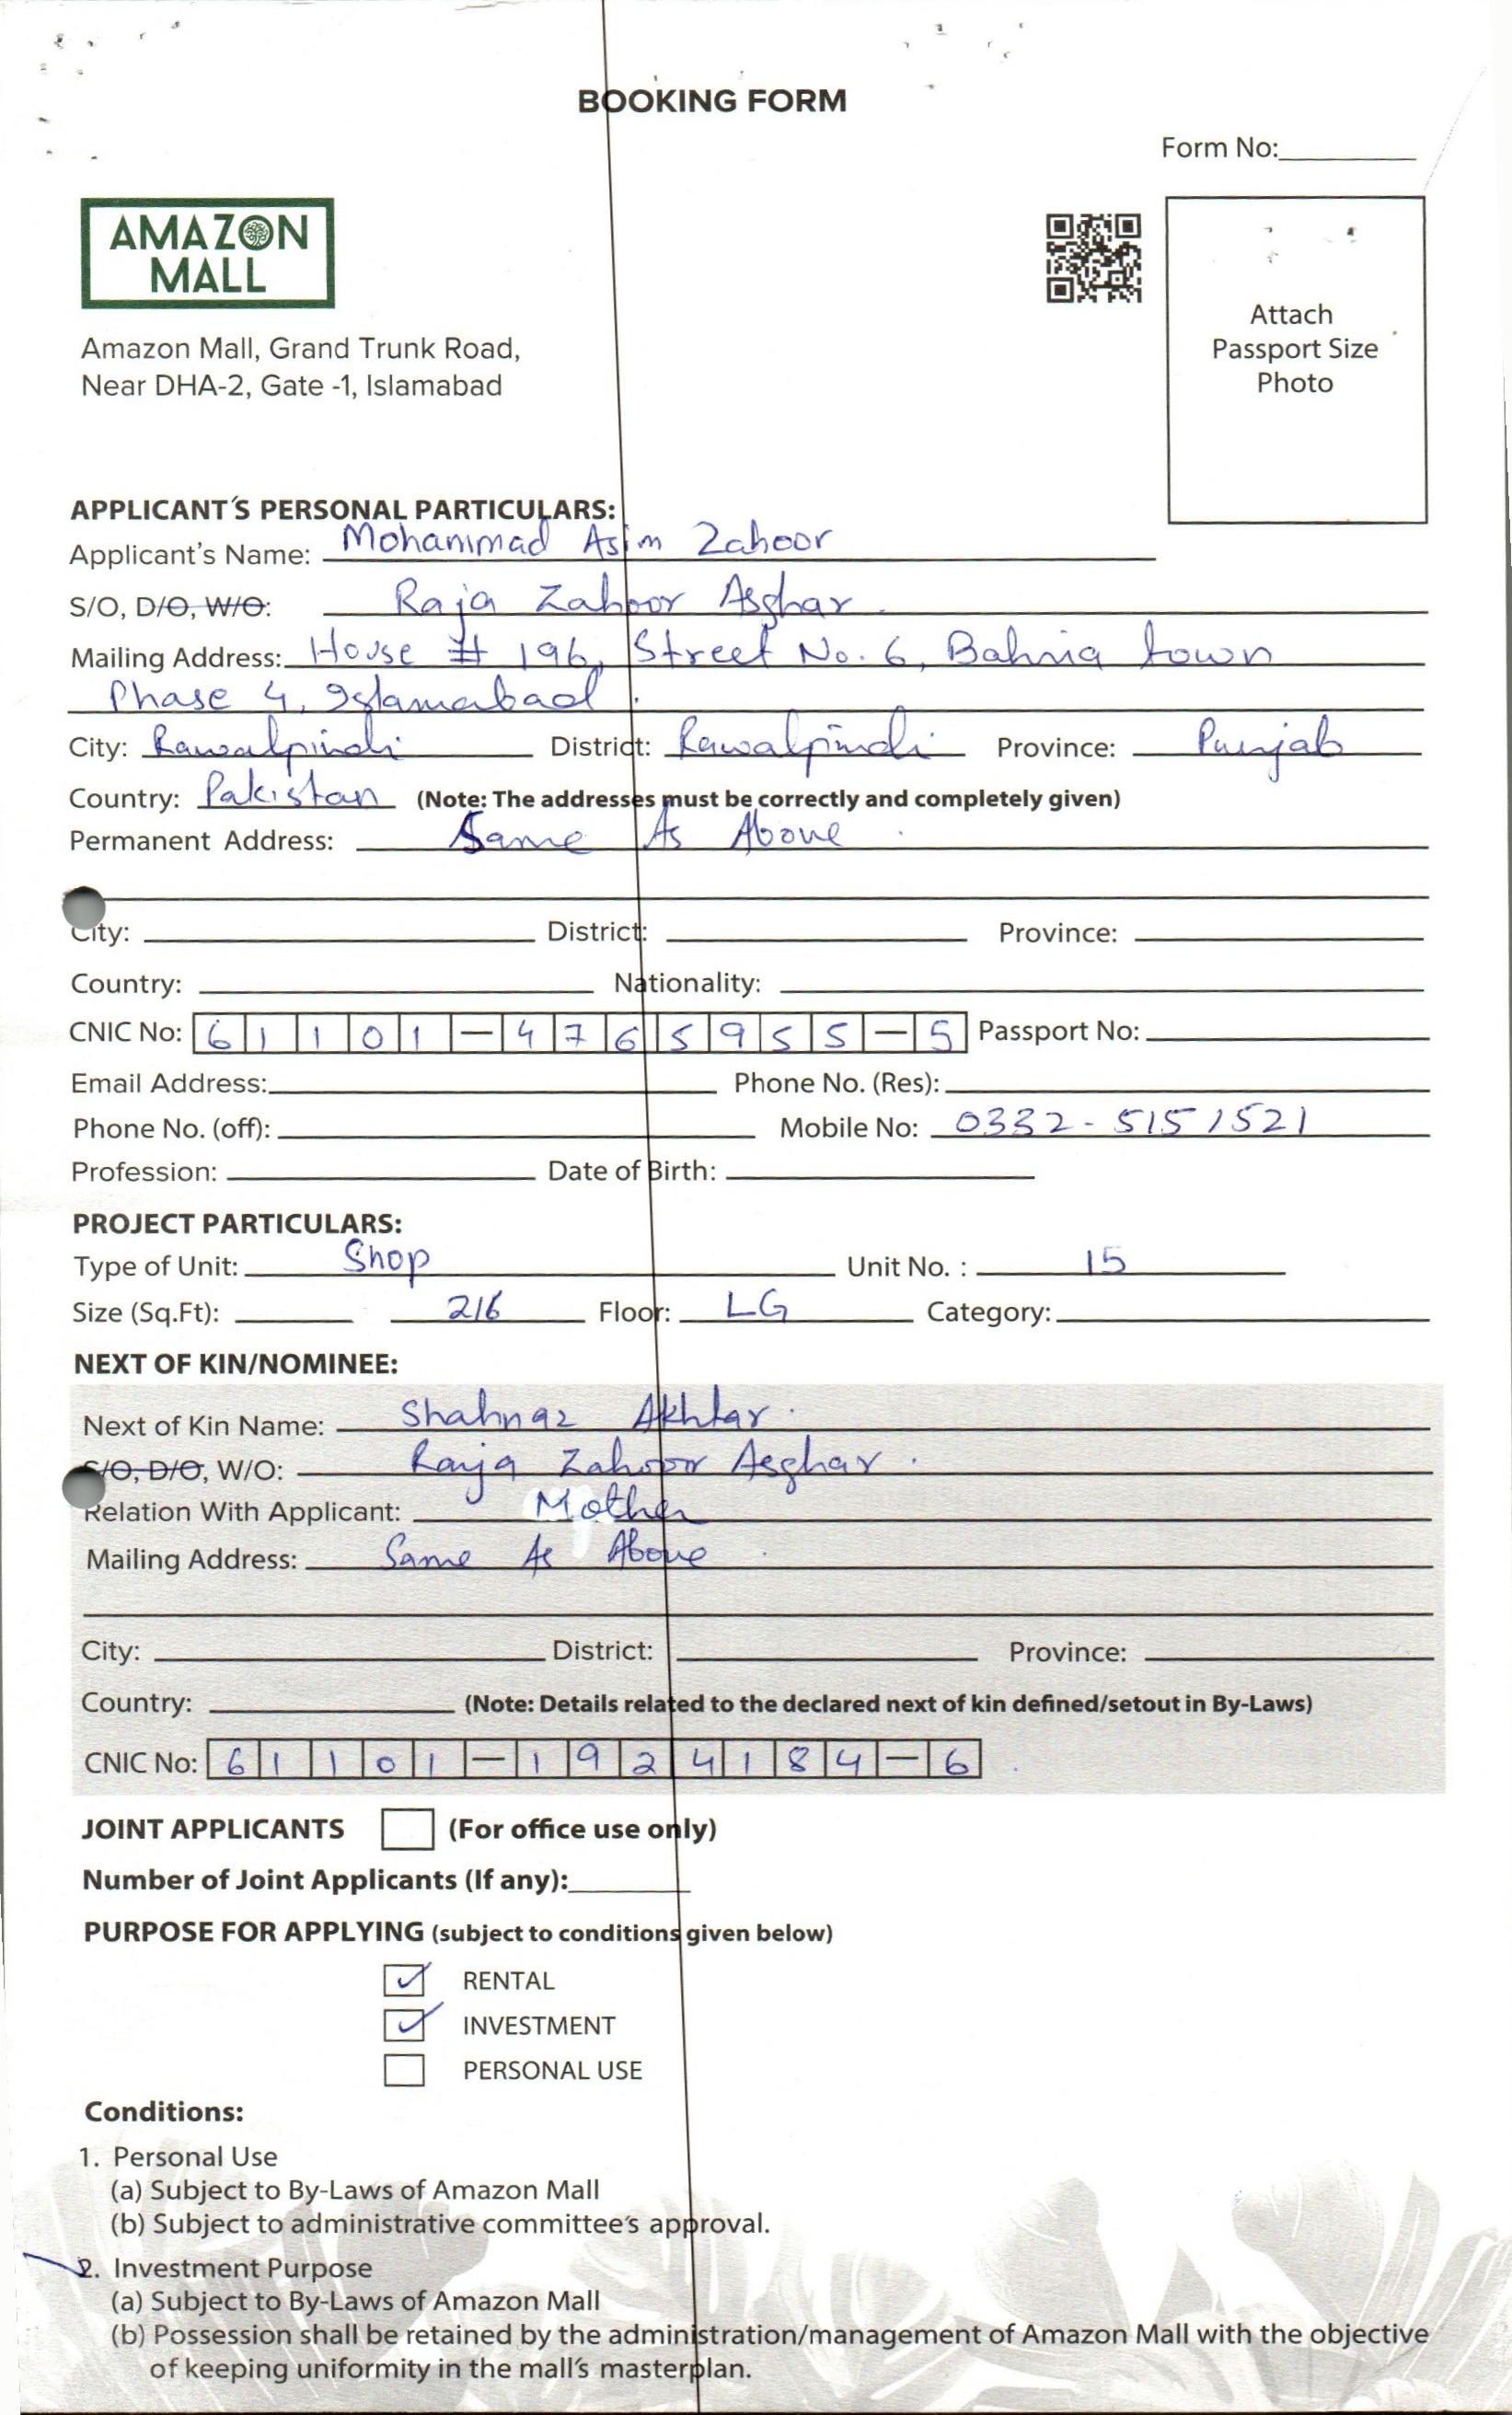 BOOKING FORM
Form No:
AMAZON
MALL
Attach
Passport Size
Photo
Amazon Mall, Grand Trunk Road,
Near DHA-2, Gate -1, Islamabad
APPLICANT'S PERSONAL PARTICULARS:
Applicant's Name: Mohammad Asim Zahoor
S/O, D/O, W/O: Raja Zahoor Asghar
Mailing Address: House # 196, Street No. 6, Bahria town
Phase 4, Islamabad.
City: Rawalpindi District: Rawalpindi Province: Punjab
Country: Pakistan (Note: The addresses must be correctly and completely given)
Permanent Address: Same As Above.
City: District: Province:
Country: Nationality:
CNIC No: 61101-4765955-5 Passport No:
Email Address: Phone No. (Res):
Phone No. (off): Mobile No: 0332-5151521
Profession: Date of Birth:
PROJECT PARTICULARS:
Type of Unit: Shop Unit No. : 15
Size (Sq.Ft): 216 Floor: LG Category:
NEXT OF KIN/NOMINEE:
Next of Kin Name: Shahnaz Akhtar.
S/O, D/O, W/O: Raja Zahoor Asghar.
Relation With Applicant: Mother
Mailing Address: Same As Above.
City: District: Province:
Country: (Note: Details related to the declared next of kin defined/setout in By-Laws)
CNIC No: 61101-1924184-6
JOINT APPLICANTS (For office use only)
Number of Joint Applicants (If any):
PURPOSE FOR APPLYING (subject to conditions given below)
RENTAL
INVESTMENT
PERSONAL USE
Conditions:
1. Personal Use
(a) Subject to By-Laws of Amazon Mall
(b) Subject to administrative committee's approval.
2. Investment Purpose
(a) Subject to By-Laws of Amazon Mall
(b) Possession shall be retained by the administration/management of Amazon Mall with the objective
of keeping uniformity in the mall's masterplan.